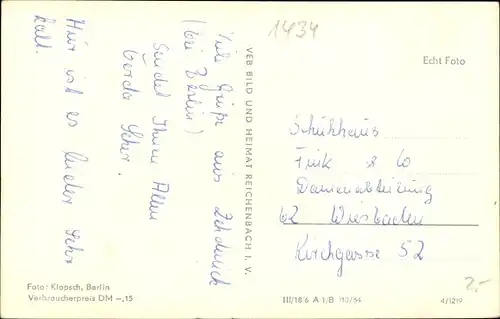 1434
Viele Grüße aus Zehdenick
(bei Berlin)
Sendet Ihnen Allen
Gerda
Hier ist es leider sehr
kalt.
VEB BILD UND HEIMAT REICHENBACH I. V.
Echt Foto
Schuhhaus
Fink & Co
Damenabteilung
62 Wiesbaden
Kirchgasse 52
2,-
Foto: Klapsch, Berlin
Verbraucherpreis DM -,15
III/18/6 A 1/B 110/64
4/1219